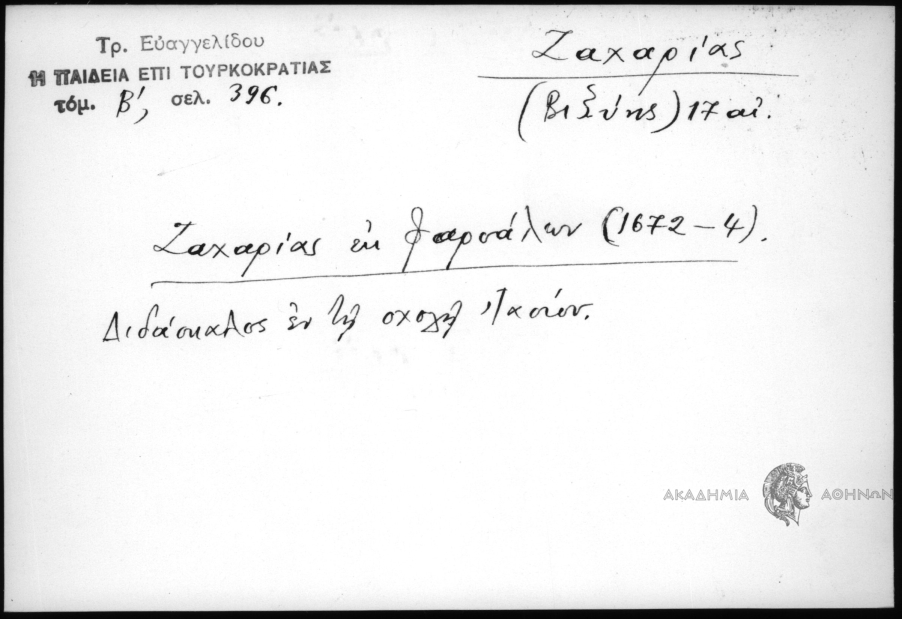 Τρ. Εὐαγγελίδου
Η ΠΑΙΔΕΙΑ ΕΠΙ ΤΟΥΡΚΟΚΡΑΤΙΑΣ
τόμ. Β', σελ. 396.
Ζαχαρίας
(Βιζύης) 17 αἰ.
Ζαχαρίας ἐκ Φαρσάλων (1672-4).
Διδάσκαλος ἐν τῇ σχολῇ Ἰασίου.
ΑΚΑΔΗΜΙΑ ΑΘΗΝΩΝ